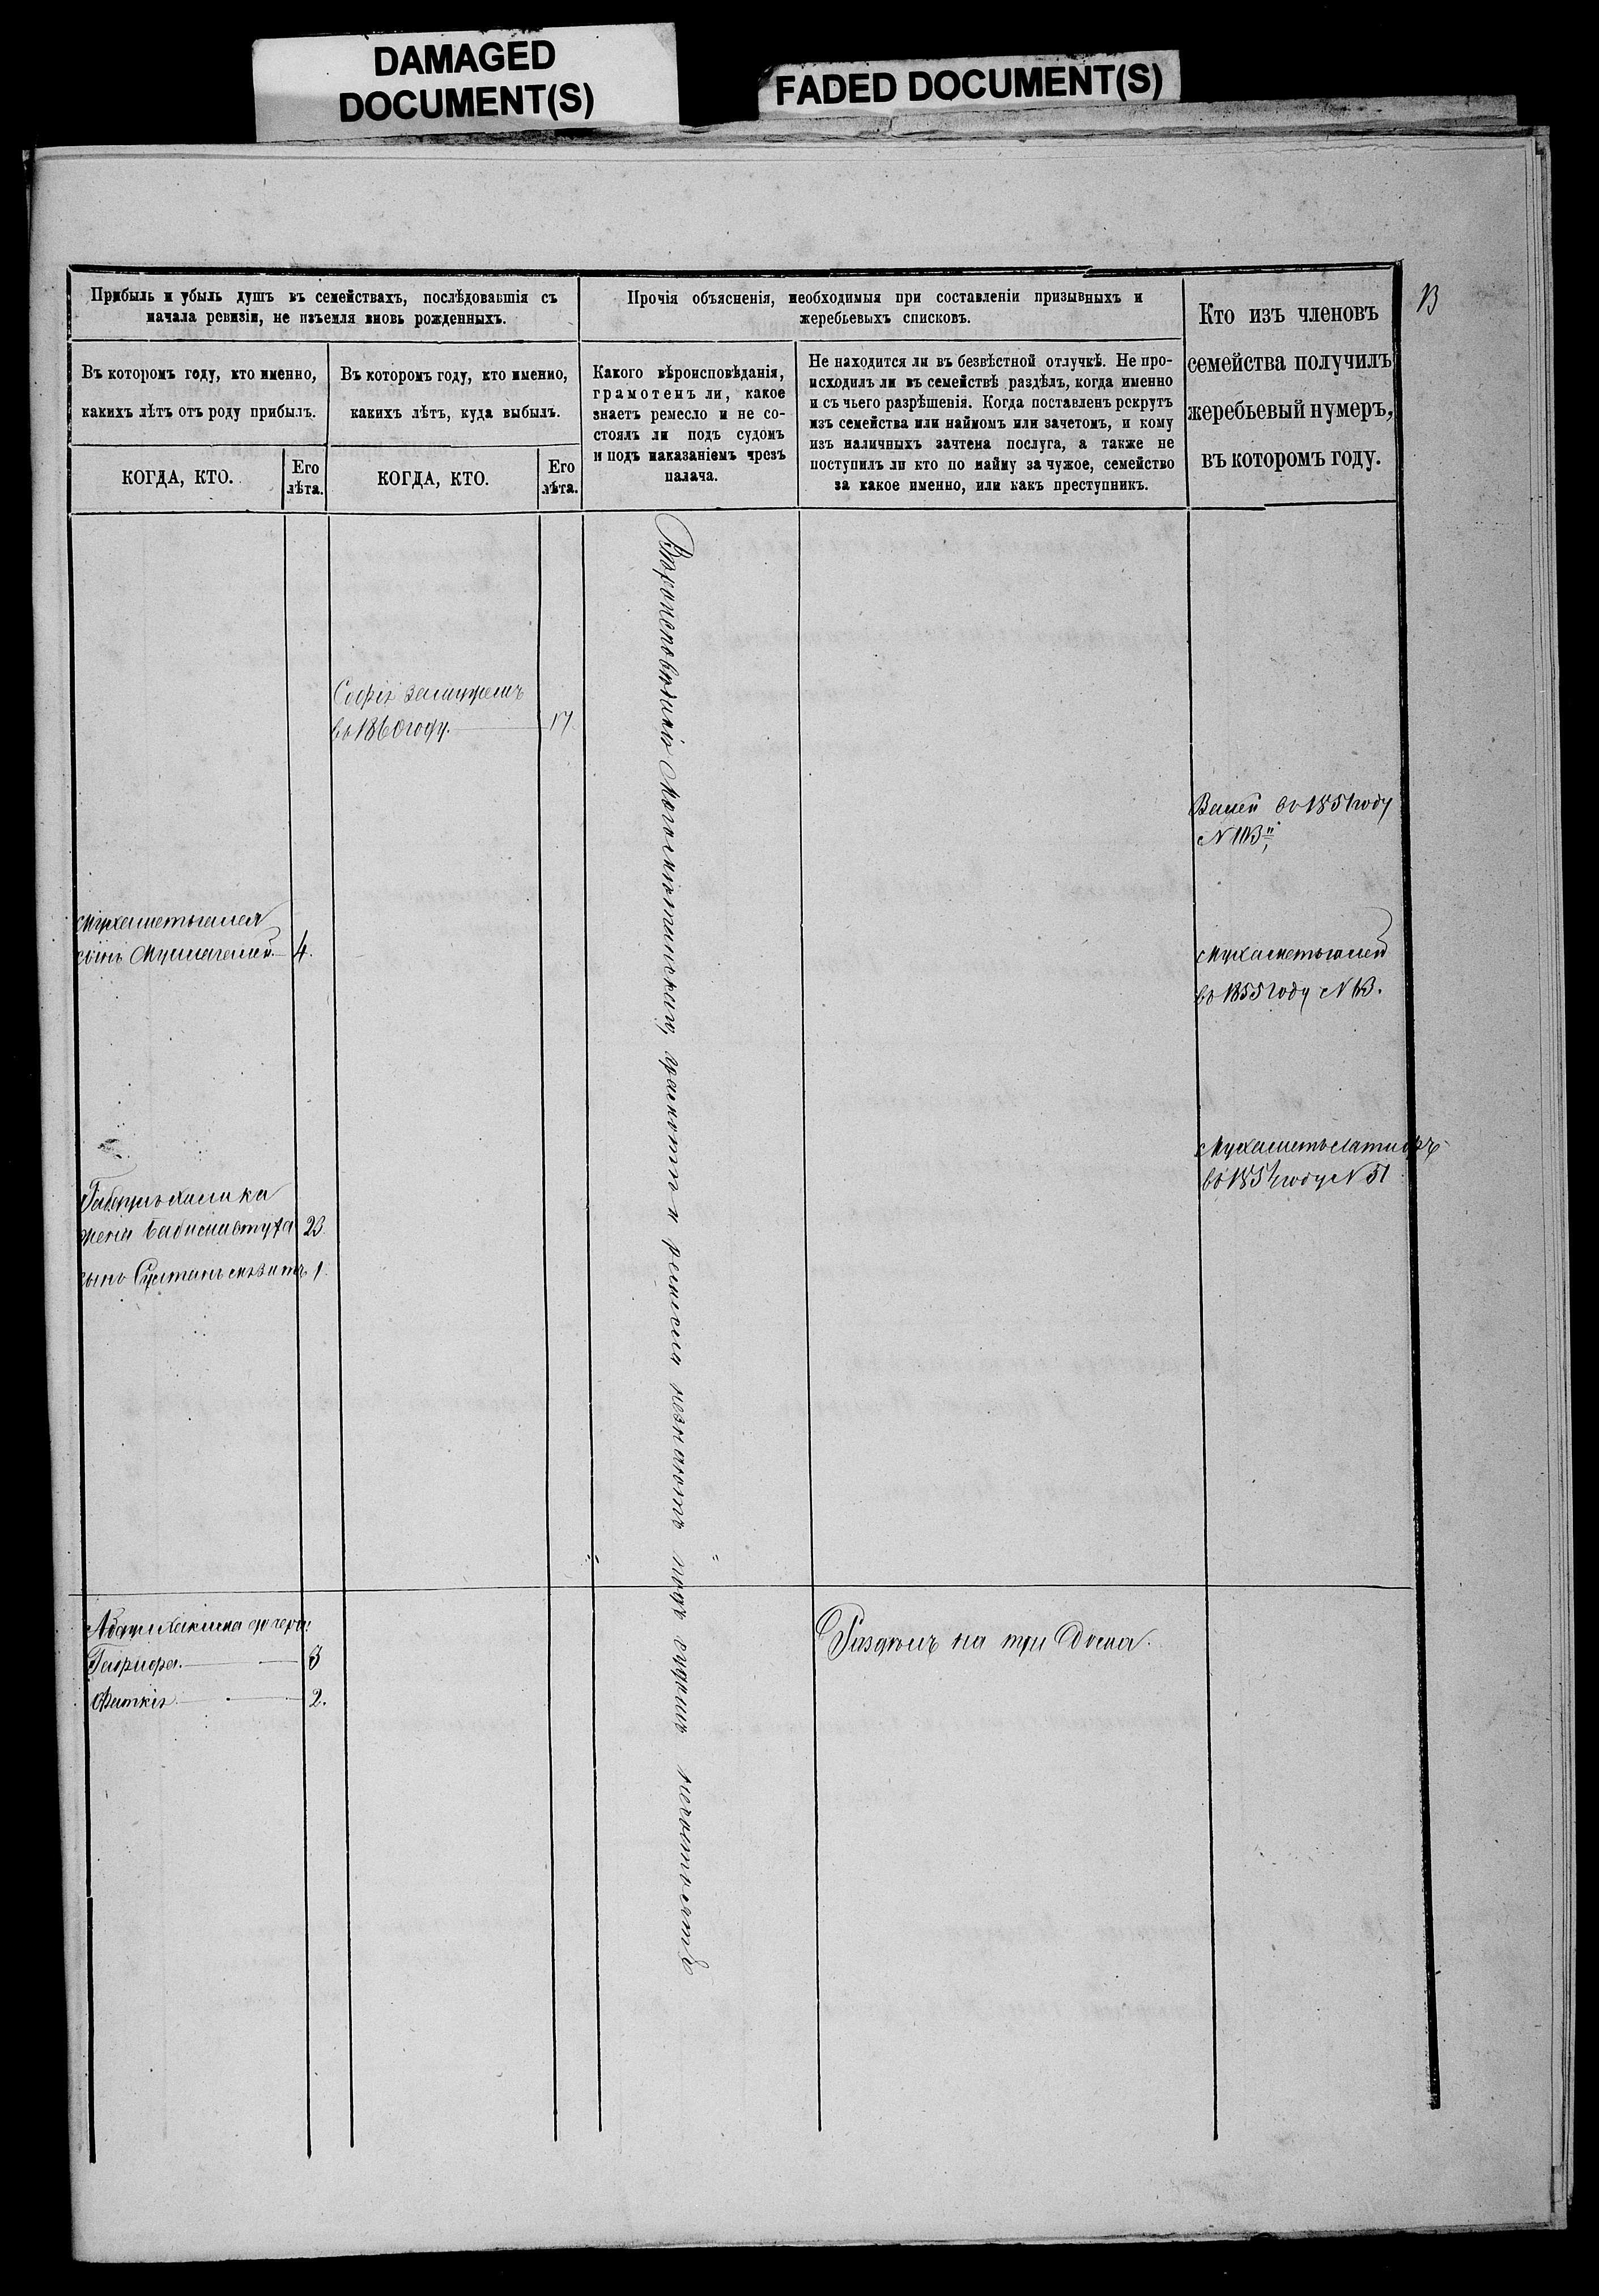 DAMAGED
DOCUMENT(S)
FADED DOCUMENT(S)
13
Прибыль и убыль душъ въ семействахъ, послѣдовавшія съ
начала ревизіи, не изъемля вновь рожденныхъ.
Въ которомъ году, кто именно,
какихъ лѣтъ отъ роду прибылъ.
КОГДА, КТО.
Его
лѣта.
Въ которомъ году, кто именно,
какихъ лѣтъ, куда выбылъ.
КОГДА, КТО.
Его
лѣта.
Прочія объясненія, необходимыя при составленіи призывныхъ и
жеребьевыхъ списковъ.
Какого вѣроисповѣданія,
грамотенъ ли, какое
знаетъ ремесло и не со-
стоялъ ли подъ судомъ
и подъ наказаніемъ чрезъ
палача.
Не находится ли въ безвѣстной отлучкѣ. Не про-
исходилъ ли въ семействѣ раздѣлъ, когда именно
и съ чьего разрѣшенія. Когда поставленъ рекрутъ
изъ семейства или наймомъ или зачетомъ, и кому
изъ наличныхъ зачтена послуга, а также не
поступилъ ли кто по найму за чужое, семейство
за какое именно, или какъ преступникъ.
Кто изъ членовъ
семейства получилъ
жеребьевый нумеръ,
въ которомъ году.
Софія замужемъ
въ 1860 году. 17.
Валей въ 1851 году
Мухаметьгалея
сынъ 4.
Мухаметьгалей
въ 1855 году N 13.
въ году N 51
жена 23.
сынъ 1.
Вѣроисповѣданія Магометанскаго, грамоты и ремесла незнаютъ подъ судомъ несостоятъ
дочери
3
2.
Раздѣлъ на три дома.